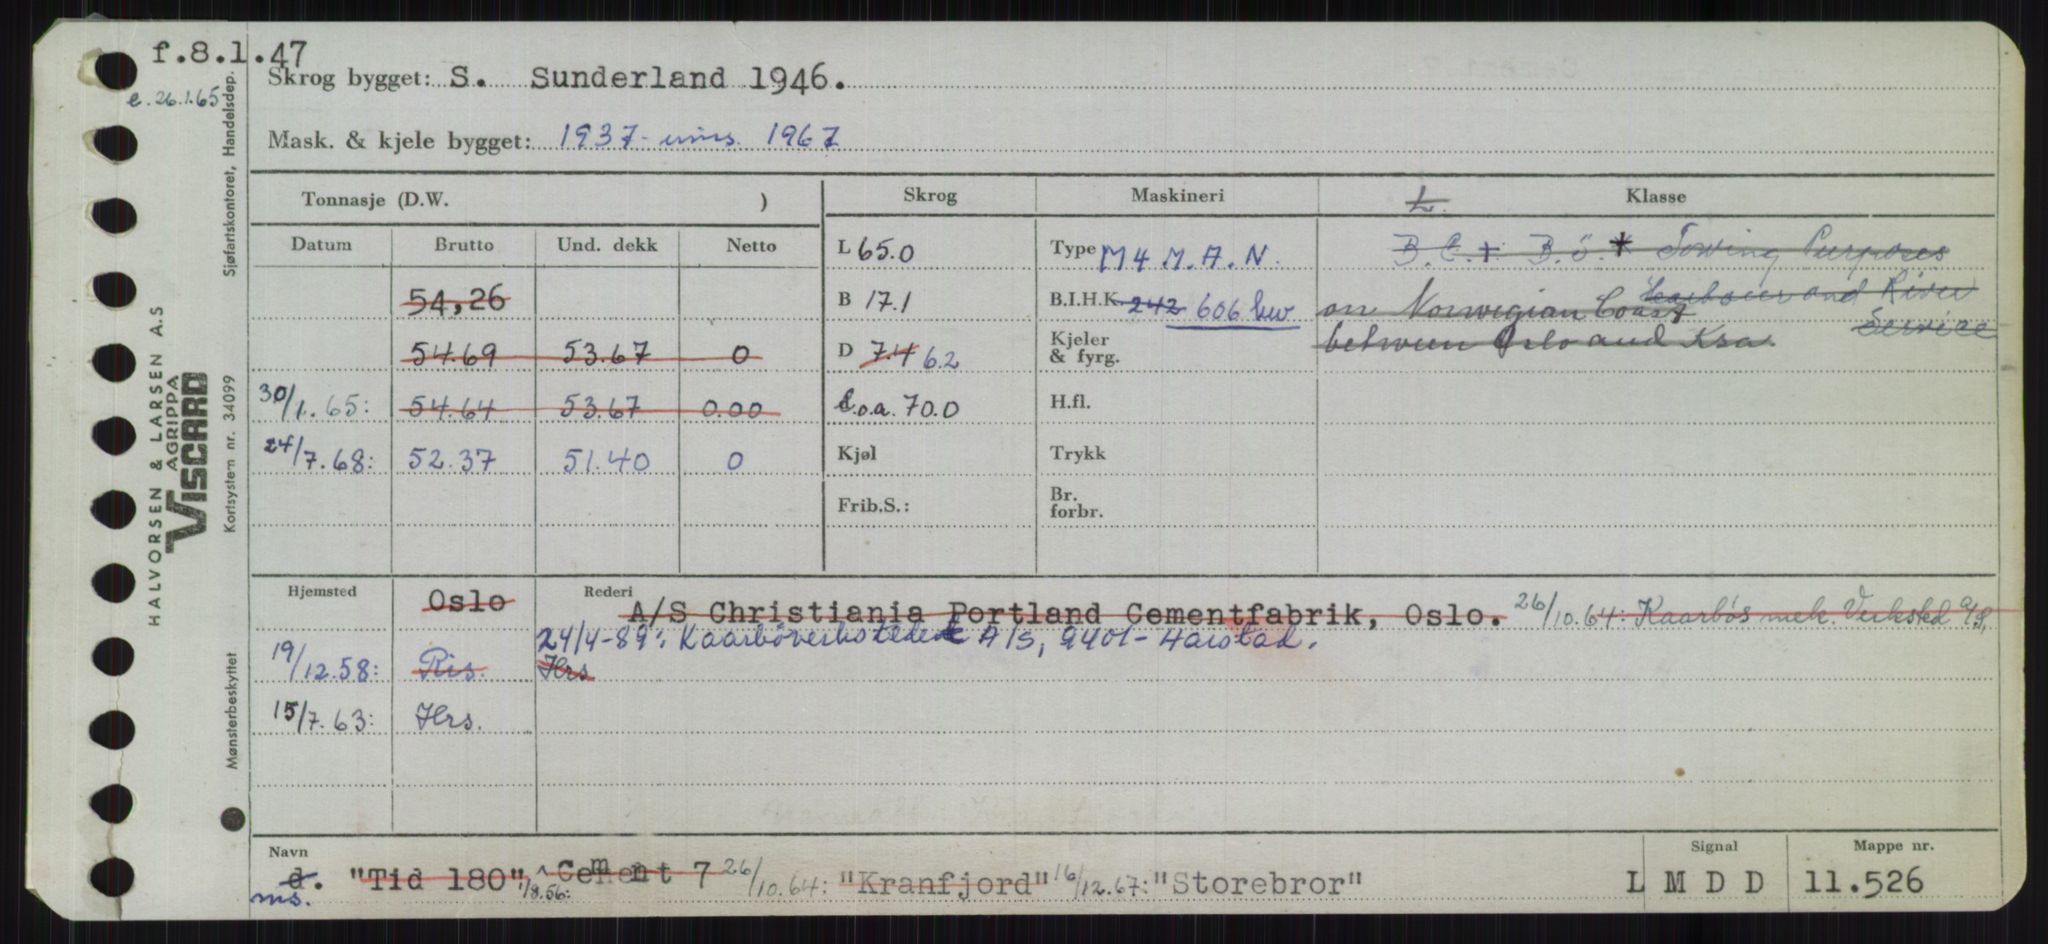 f.8.1.47
e. 26.1.65
Skrog bygget: S. Sunderland 1946.
Mask. & kjele bygget: 1937- 1967
Tonnasje (D.W. )
Skrog
Maskineri
L.
Klasse
Datum Brutto Und. dekk Netto
54,26
54.69 53.67 0
30/1.65: 54.64 53.67 0.00
24/7.68: 52.37 51.40 0
L 65.0
B 17.1
D 7.4 6.2
L.o.a. 70.0
Kjøl
Frib.S.:
Type M 4 M.A.N.
B.I.H.K. 242 606 bhv
Kjeler & fyrg.
H.fl.
Trykk
Br. forbr.
B.C.+ B.S.* Towing Purposes
Harbour and River
on Norwegian Coast
Service
between Oslo and Ksa.
Hjemsted Oslo
Rederi A/S Christiania Portland Cementfabrik, Oslo. 26/10.64: Kaarbøs mek. Verksted A/S,
24/4-89: Kaarbøverkstedet A/S, 9401- Harstad.
19/12.58: Ris. Hrs
15/7.63: Hrs.
Navn
d. "Tid 180", Cement 7 26/10.64: "Kranfjord" 16/12.67: "Storebror"
ms. 1/8.56:
Signal
L M D D
Mappe nr.
11.526
HALVORSEN & LARSEN A.S
AGRIPPA
VISCARD
Sjøfartskontoret, Handelsdep.
Kortsystem nr. 34099
Mønsterbeskyttet